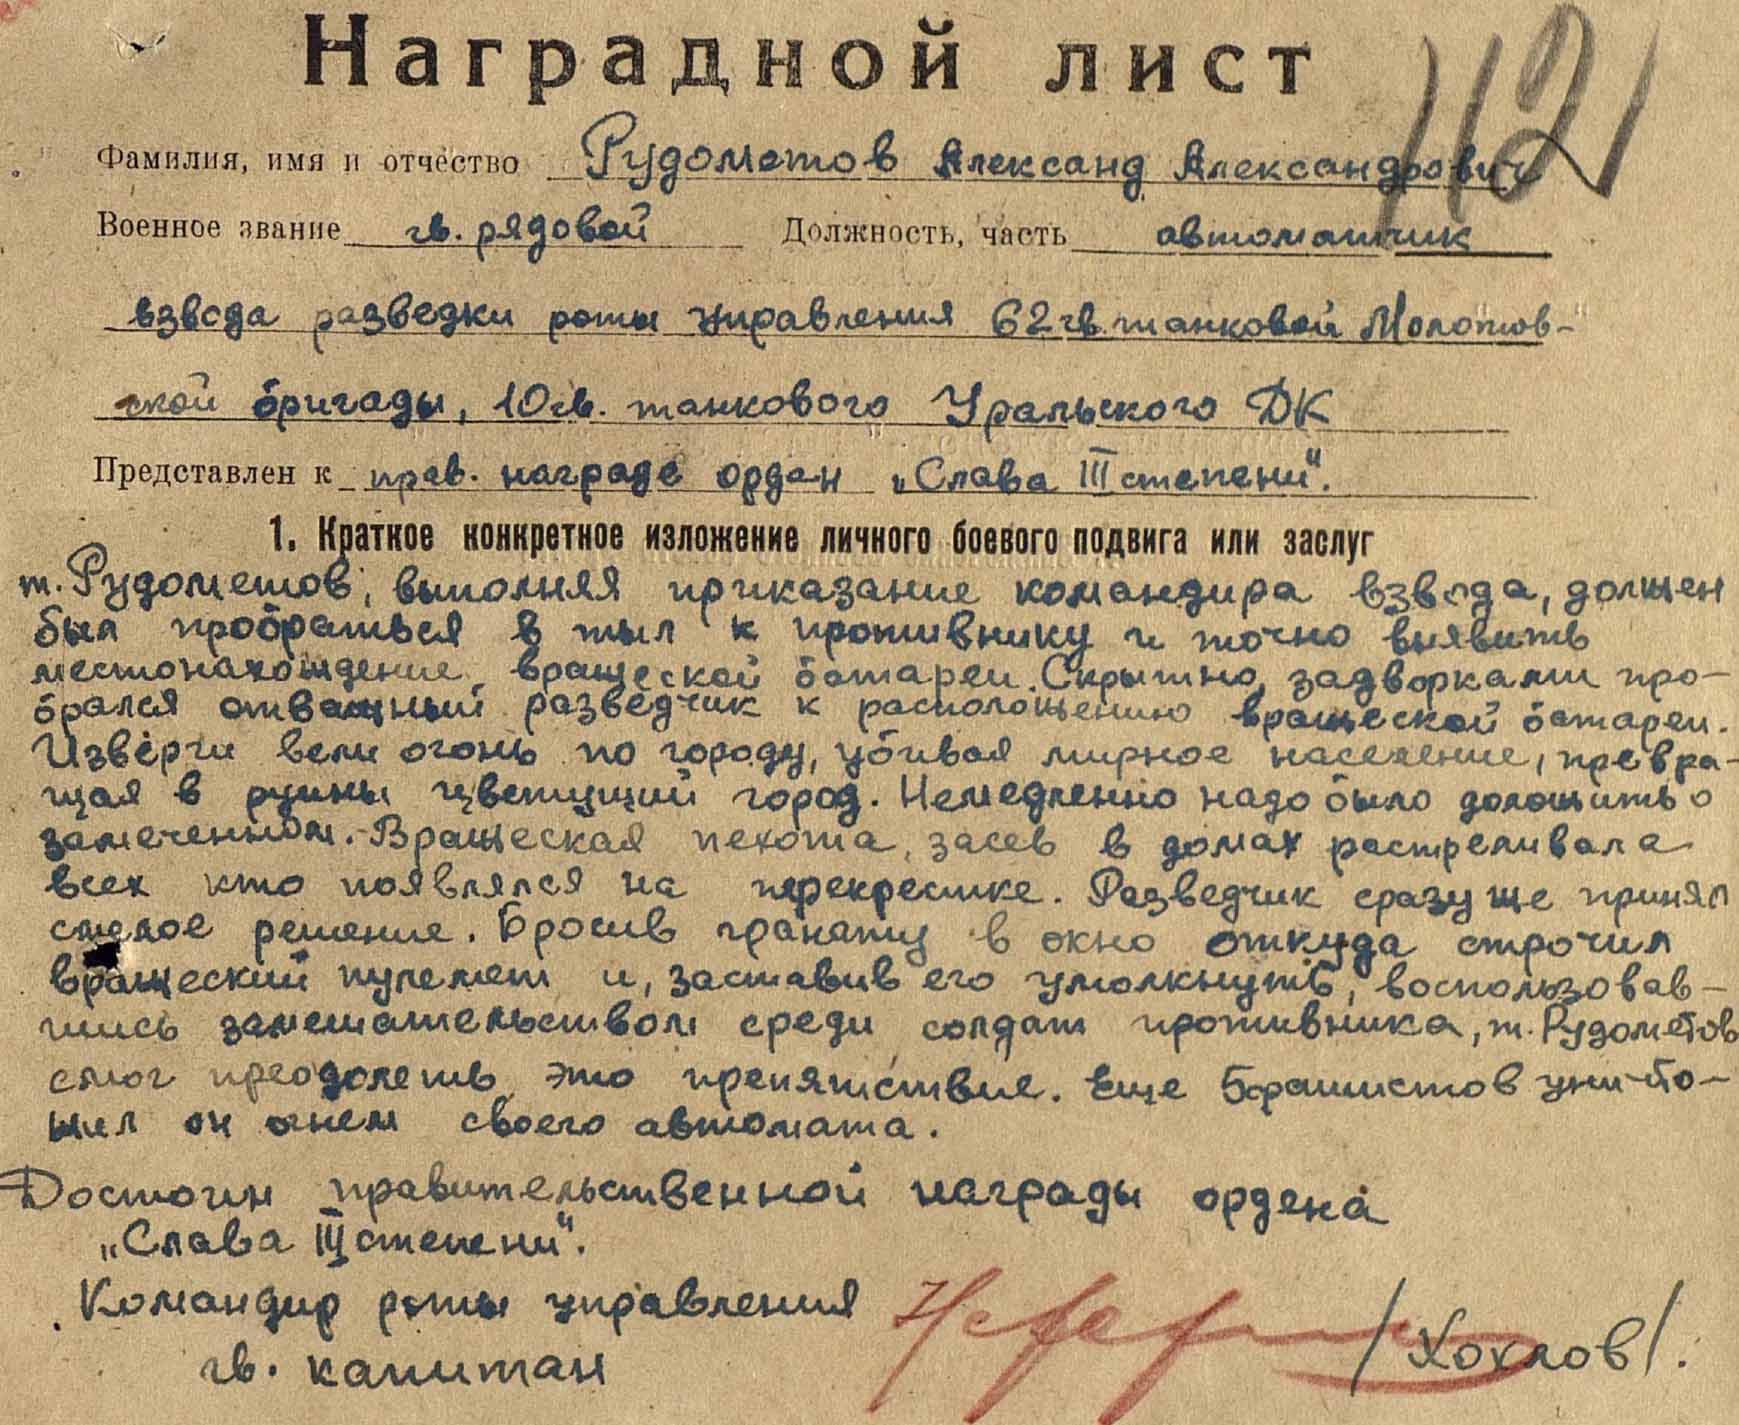 Наградной лист
112
Фамилия, имя и отчество Рудометов Александ Александрович
Военное звание гв. рядовой Должность, часть автоматчик
взвода разведки роты управления 62 гв. танковой Молотов-
ской бригады, 10 гв. танкового Уральского ДК
Представлен к прав. награде ордан „Слава III степени".
1. Краткое конкретное изложение личного боевого подвига или заслуг
т. Рудометов, выполняя приказание командира взвода, должен
был пробраться в тыл к противнику и точно выявить
местонахождение вражеской батареи. Скрытно, задворками про-
брался отважный разведчик к расположению вражеской батареи.
Изверги вели огонь по городу, убивая мирное население, превра-
щая в руины цветущий город. Немедленно надо было доложить о
замеченном. Вражеская пехота, засев в домах растреливала
всех кто появлялся на перекрестке. Разведчик сразу же принял
смелое решение. Бросив гранату в окно откуда строчил
вражеский пулемет и, заставив его умолкнуть, воспользовав-
шись замешательством среди солдат противника, т. Рудометов
смог преодолеть это препятствие. Еще 5 фашистов уничто-
жил он огнем своего автомата.
Достоин правительственной награды ордена
„Слава III степени".
Командир роты управления
гв. капитан /Хохлов/.